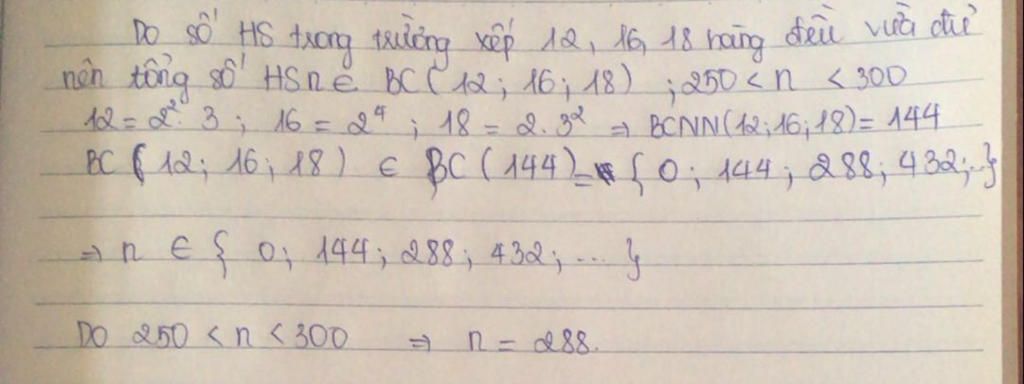 Do số HS trong trường xếp 12, 16, 18 hàng đều vừa đủ
nên tổng số HS n ∈ BC ( 12 ; 16 ; 18 ) ; 250 < n < 300
12 = 2². 3 ; 16 = 2⁴ ; 18 = 2. 3² ⇒ BCNN(12;16;18) = 144
BC ( 12 ; 16 ; 18 ) ∈ BC ( 144 ) = { 0 ; 144 ; 288 ; 432 ;..}
⇒ n ∈ { 0 ; 144 ; 288 ; 432 ; ... }
Do 250 < n < 300 ⇒ n = 288.